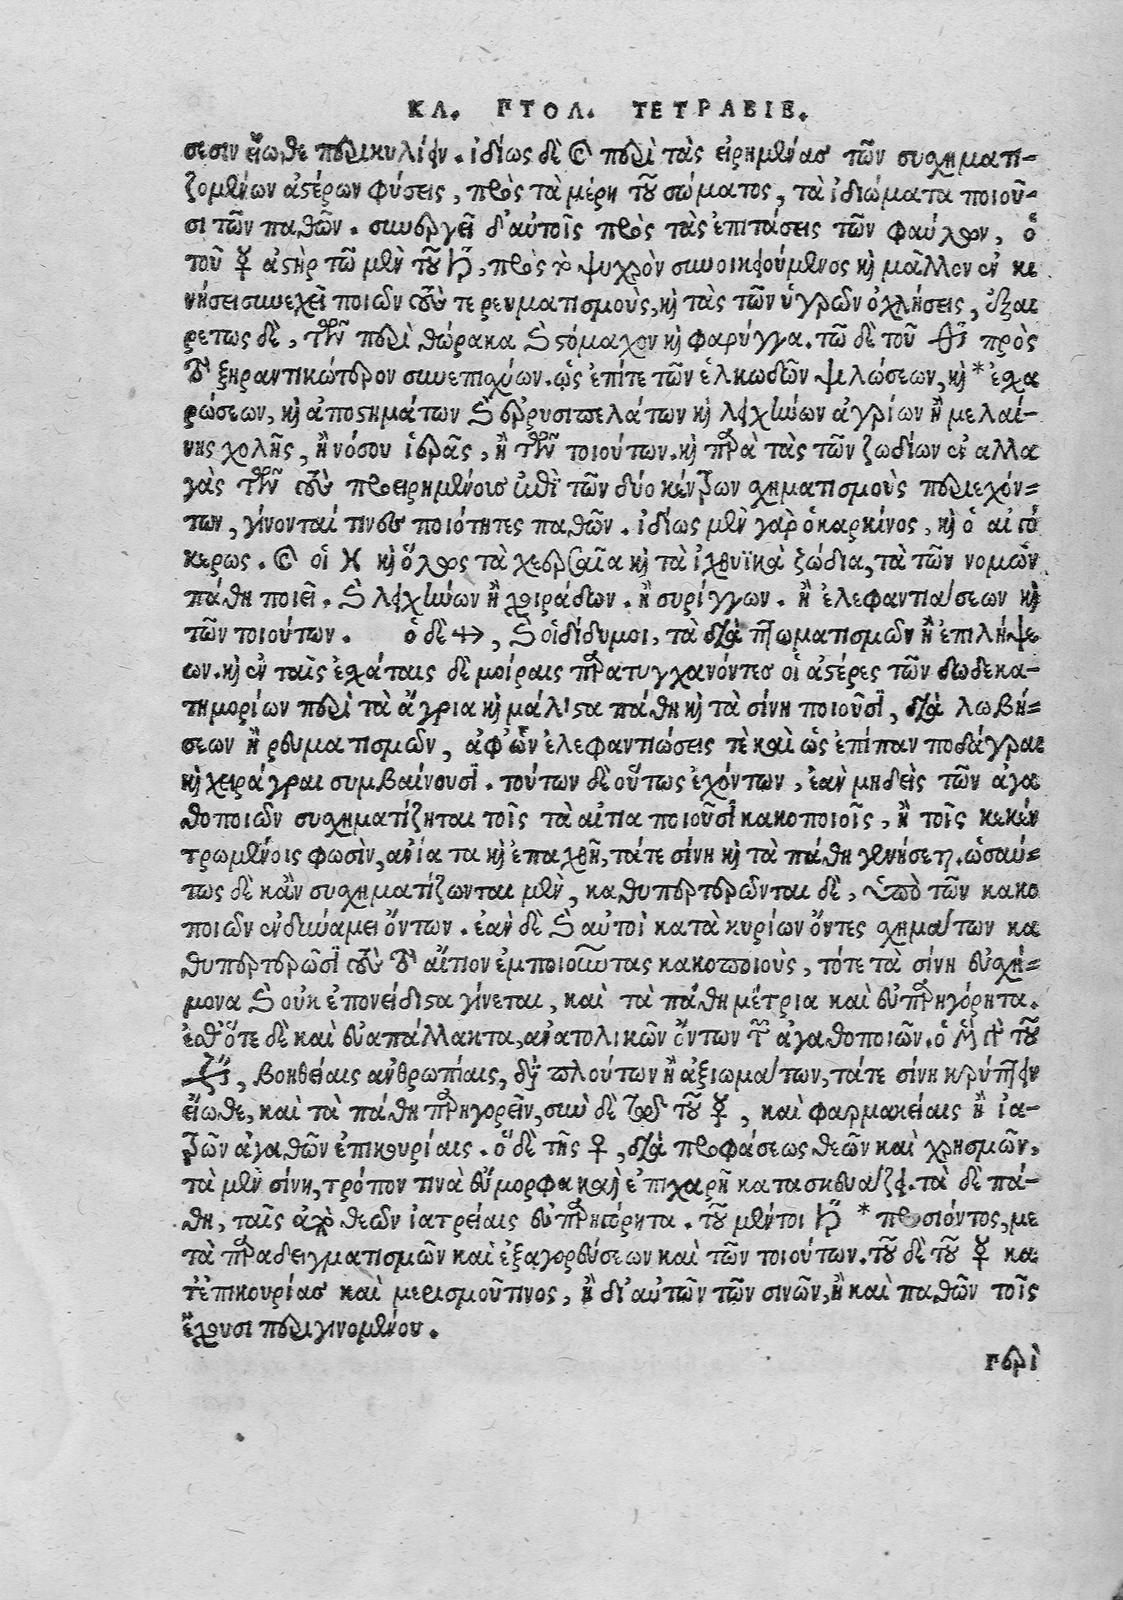 ΚΛ. ΠΤΟΛ. ΤΕΤΡΑΒΙΒ.
σεσιν εἴωθε περικυλίειν. ἰδίως δὲ καὶ περὶ τὰς εἰρημένας τῶν συσχηματι-
ζομένων ἀστέρων φύσεις, πρὸς τὰ μέρη τοῦ σώματος, τὰ ἰδιώματα ποιοῦ-
σι τῶν παθῶν. συνεργεῖ δ' αὐτοῖς πρὸς τὰς ἐπιτάσεις τῶν φαύλων, ὁ
τοῦ ☿ ἀστὴρ τῷ μὲν τοῦ ♄, πρὸς τὸ ψυχρὸν συνοικειούμενος καὶ μᾶλλον ἐν κι
νήσει συνεχεῖ ποιῶν τούς τε ρευματισμοὺς, καὶ τὰς τῶν ὑγρῶν ὀχλήσεις, ἐξαι
ρέτως δὲ, τῶν περὶ θώρακα καὶ στόμαχον καὶ φαρύγγα. τῷ δὲ τοῦ ♂ πρὸς
τὸ ξηραντικώτερον συνεπισχύων. ὡς ἐπίτε τῶν ἑλκωδῶν ψιλώσεων, καὶ * ἐσχα
ρώσεων, καὶ ἀποστημάτων καὶ ἐρυσιπελάτων καὶ λειχήνων ἀγρίων ἢ μελαί-
νης χολῆς, ἢ νόσου ἱερᾶς, ἢ τῶν τοιούτων. καὶ παρὰ τὰς τῶν ζωδίων ἐναλλα
γὰς τῶν τοὺς προειρημένους ἐπὶ τῶν δύο κέντρων σχηματισμοὺς περιεχόν-
των, γίνονταί τινες ποιότητες παθῶν. ἰδίως μὲν γὰρ ὁ καρκίνος, καὶ ὁ αἰγό
κερως. καὶ οἱ ♓ καὶ ὅλως τὰ χερσαῖα καὶ τὰ ἰχθυϊκὰ ζώδια, τὰ τῶν νομῶν
πάθη ποιεῖ. καὶ λειχήνων ἢ χοιράδων. ἢ συρίγγων. ἢ ἐλεφαντιάσεων καὶ
τῶν τοιούτων. ὁ δὲ ♐, καὶ οἱ δίδυμοι, τὰ διὰ πτωματισμῶν ἢ ἐπιλήψε
ων. καὶ ἐν ταῖς ἐσχάταις δὲ μοίραις παρατυγχανόντες οἱ ἀστέρες τῶν δωδεκα-
τημορίων περὶ τὰ ἄκρια καὶ μάλιστα πάθη καὶ τὰ σίνη ποιοῦσι, διὰ λωβή-
σεων ἢ ρευματισμῶν, ἀφ' ὧν ἐλεφαντιώσεις τὲ καὶ ὡς ἐπίπαν ποδάγραι
καὶ χειράγραι συμβαίνουσι. τούτων δὲ οὕτως ἐχόντων, ἐὰν μηδεὶς τῶν ἀγα
θοποιῶν συσχηματίζηται τοῖς τὰ αἴτια ποιοῦσι κακοποιοῖς, ἢ τοῖς κεκέν
τρωμένοις φωσὶν, ἀνίατα καὶ ἐπαχθῆ, τάτε σίνη καὶ τὰ πάθη γενήσεται. ὡσαύ-
τως δὲ κἂν συσχηματίζωνται μὲν, καθυπερτερῶνται δὲ, ὑπὸ τῶν κακο
ποιῶν ἐν δυνάμει ὄντων. ἐὰν δὲ καὶ αὐτοὶ κατὰ κυρίων ὄντες σχημάτων κα
θυπερτερῶσι τοὺς τὸ αἴτιον ἐμποιοῦντας κακοποιοὺς, τότε τὰ σίνη εὐσχή-
μονα καὶ οὐκ ἐπονείδιστα γίνεται, καὶ τὰ πάθη μέτρια καὶ εὐπαρηγόρητα.
ἔσθ' ὅτε δὲ καὶ εὐαπάλλακτα, ἀνατολικῶν ὄντων τῶν ἀγαθοποιῶν. ὁ μὲν γὰρ τοῦ
♃, βοηθείαις ἀνθρωπίαις, διὰ πλούτων ἢ ἀξιωμάτων, τάτε σίνη κρύπτειν
εἴωθε, καὶ τὰ πάθη παρηγορεῖν, σὺν δὲ τῷ τοῦ ☿, καὶ φαρμακείαις ἢ ἰα-
τρῶν ἀγαθῶν ἐπικουρίαις. ὁ δὲ τῆς ♀, διὰ προφάσεως θεῶν καὶ χρησμῶν,
τὰ μὲν σίνη, τρόπον τινὰ εὔμορφα καὶ ἐπιχαρῆ κατασκευάζει. τὰ δὲ πά-
θη, ταῖς ἀπὸ θεῶν ἰατρείαις εὐπαρηγόρητα. τοῦ μέντοι ♄ * προσιόντος, με
τὰ παραδειγματισμῶν καὶ ἐξαγορεύσεων καὶ τῶν τοιούτων. τοῦ δὲ τοῦ ☿ κα
τ' ἐπικουρίας καὶ μερισμοῦ τινος, ἢ δι' αὐτῶν τῶν σινῶν, ἢ καὶ παθῶν τοῖς
ἔχουσι περιγινομένου.
Περὶ